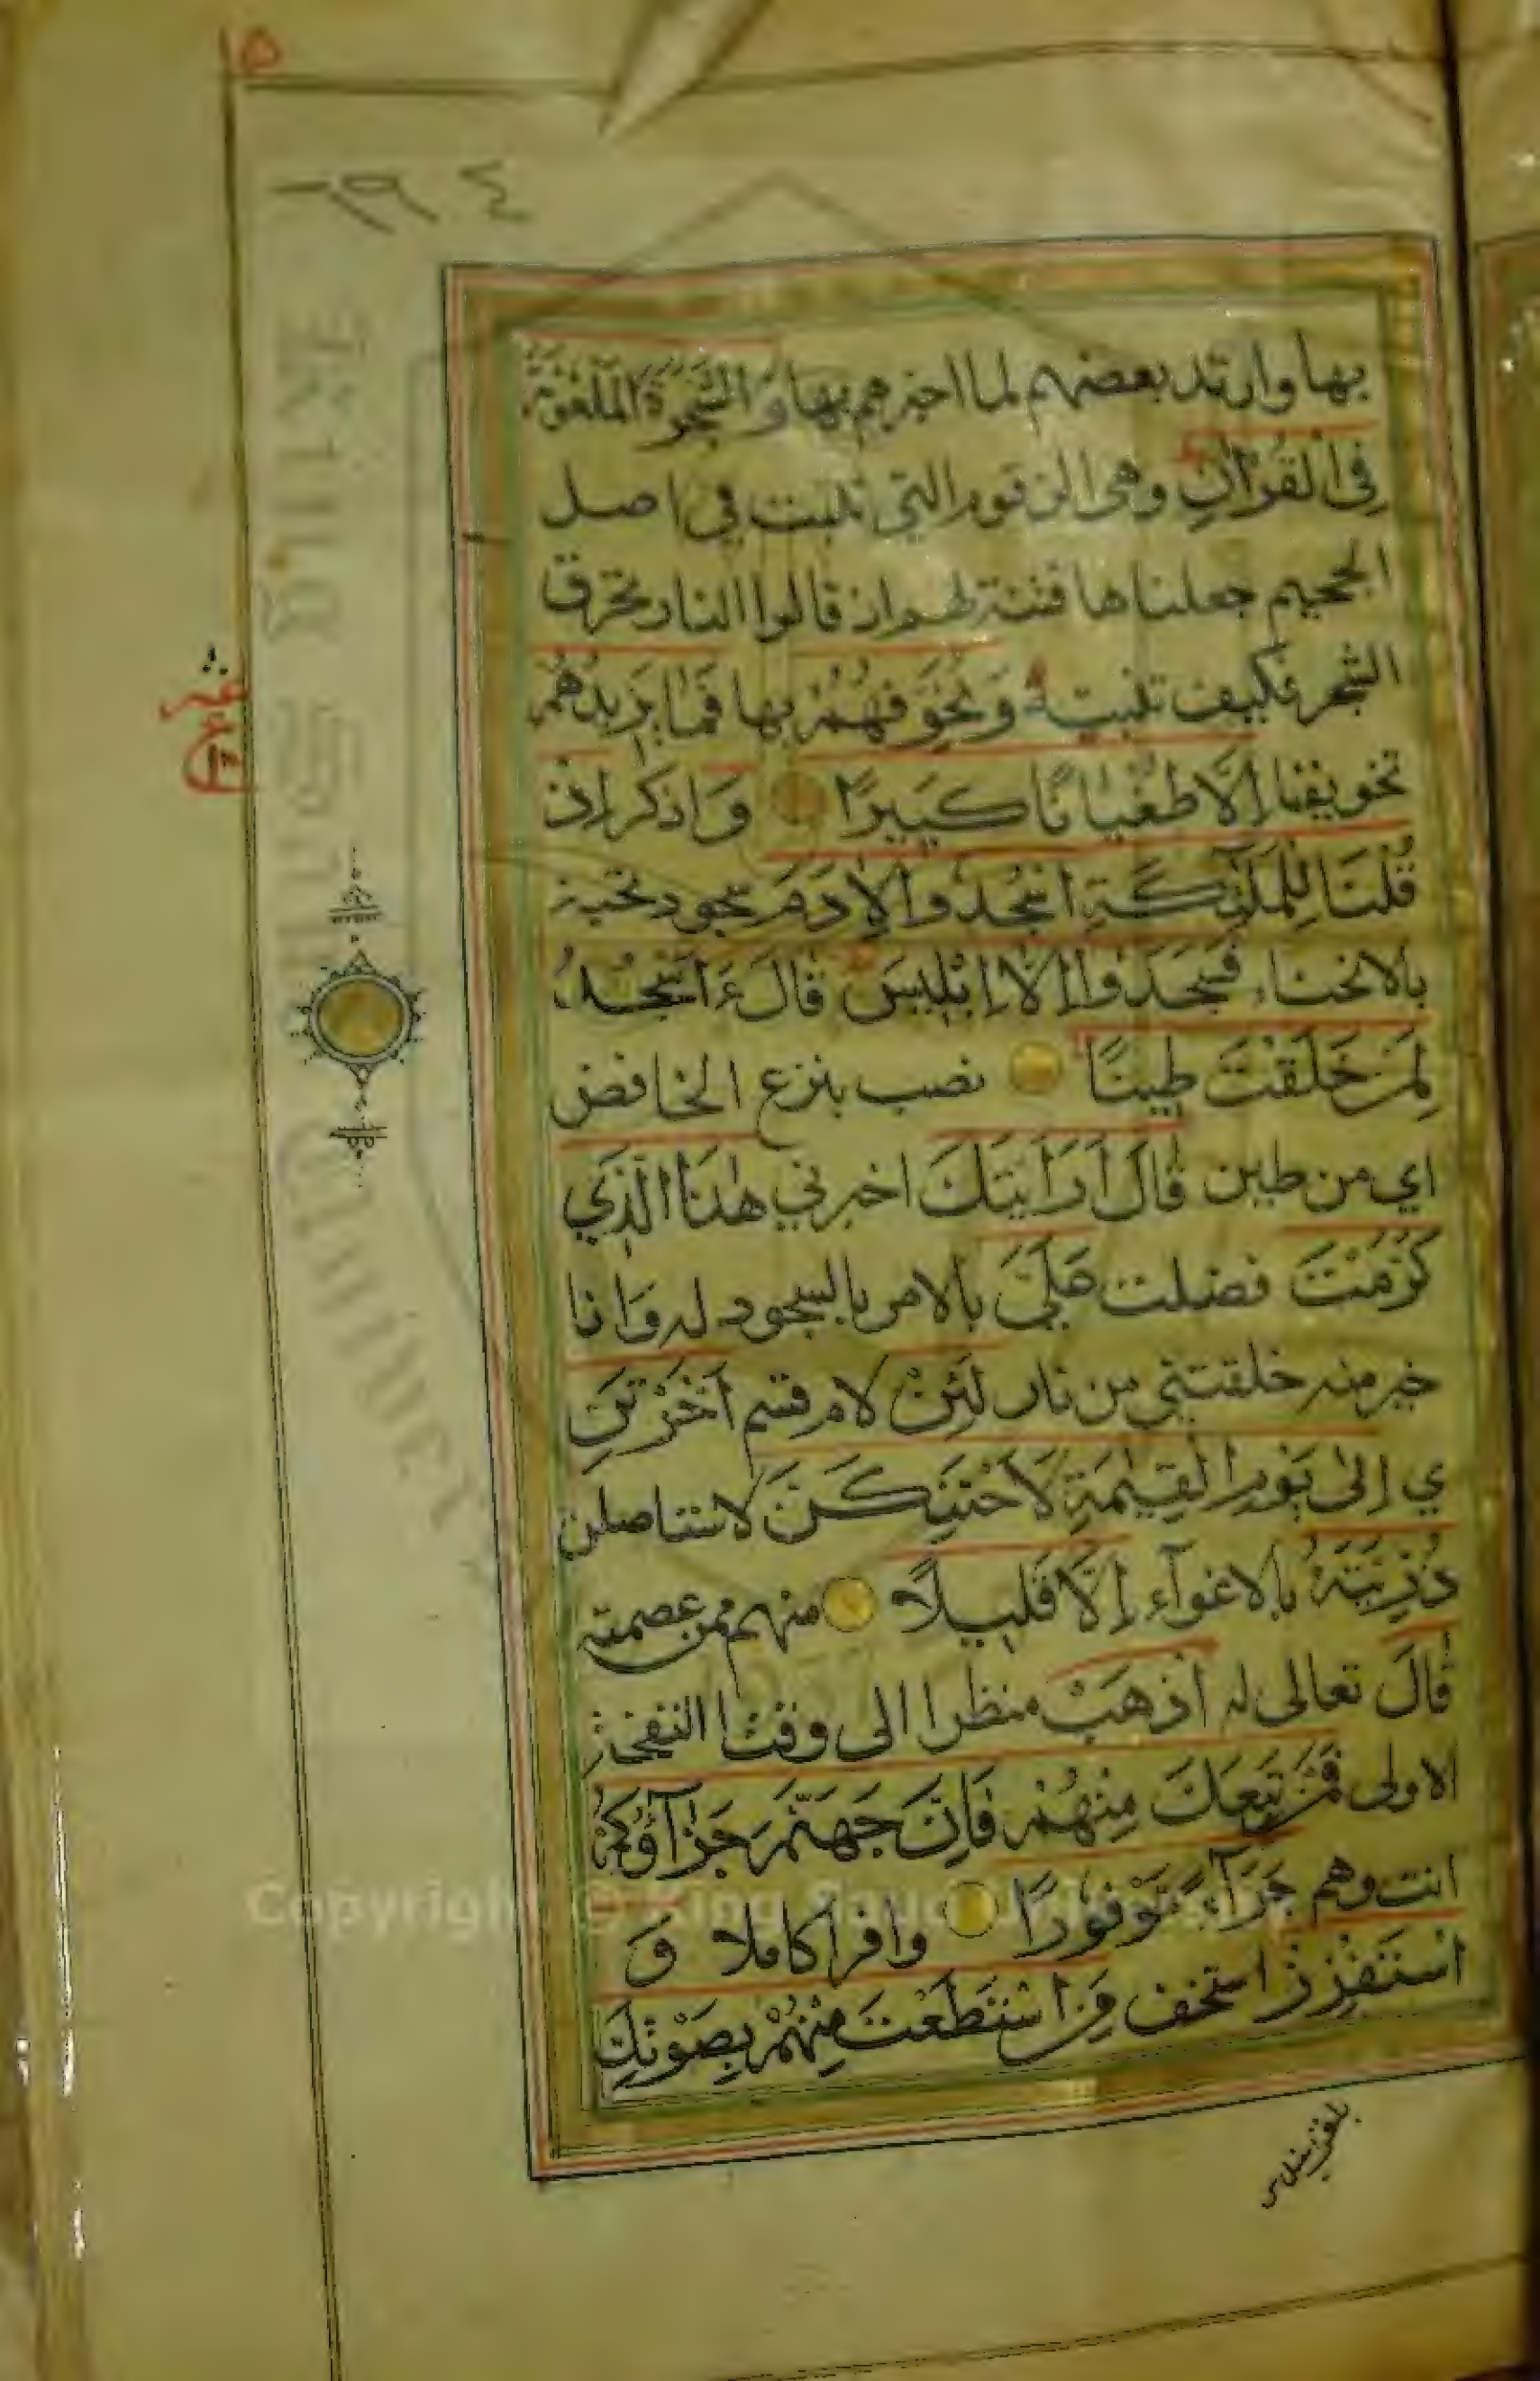 ١٥
بها وارتد بعضهم لما اخبرهم بها وَالشَّجَرَةَ الْمَلْعُونَةَ
فِي الْقُرْآنِ وهي الزقوم التي تنبت في اصل
الجحيم جعلناها فتنة لهم اذ قالوا النار تحرق
الشجر فكيف تنبته وَنُخَوِّفُهُمْ بها فَمَا يَزِيدُهُمْ
تخويفنا إِلَّا طُغْيَانًا كَبِيرًا وَاذكر إِذْ
قُلْنَا لِلْمَلٰٓئِكَةِ اسْجُدُوا لِاٰدَمَ سجود تحية
بالانحناء فَسَجَدُوا إِلَّا إِبْلِيسَ قَالَ ءَاَسْجُدُ
لِمَنْ خَلَقْتَ طِينًا نصب بنزع الخافض
اي من طين قَالَ اَرَاَيْتَكَ اخبرني هٰذَا الَّذِي
كَرَّمْتَ فضلت عَلَيَّ بالامر بالسجود له وَانا
خير منه خلقتني من نار لَئِنْ لام قسم اَخَّرْتَنِ
ي إِلٰى يَوْمِ الْقِيٰمَةِ لَاَحْتَنِكَنَّ لاستاصلن
ذُرِّيَّتَهُ بالاغوآء إِلَّا قَلِيلًا منهم ممن عصمته
قَالَ تعالى له اذْهَبْ منظرا الى وقت النفخة
الاولى فَمَنْ تَبِعَكَ مِنْهُمْ فَاِنَّ جَهَنَّمَ جَزَآؤُكُمْ
انت وهم جَزَآءً مَوْفُورًا وافرا كاملا وَ
اسْتَفْزِزْ استخف مَنِ اسْتَطَعْتَ مِنْهُمْ بِصَوْتِكَ
Copyright © King Saud University